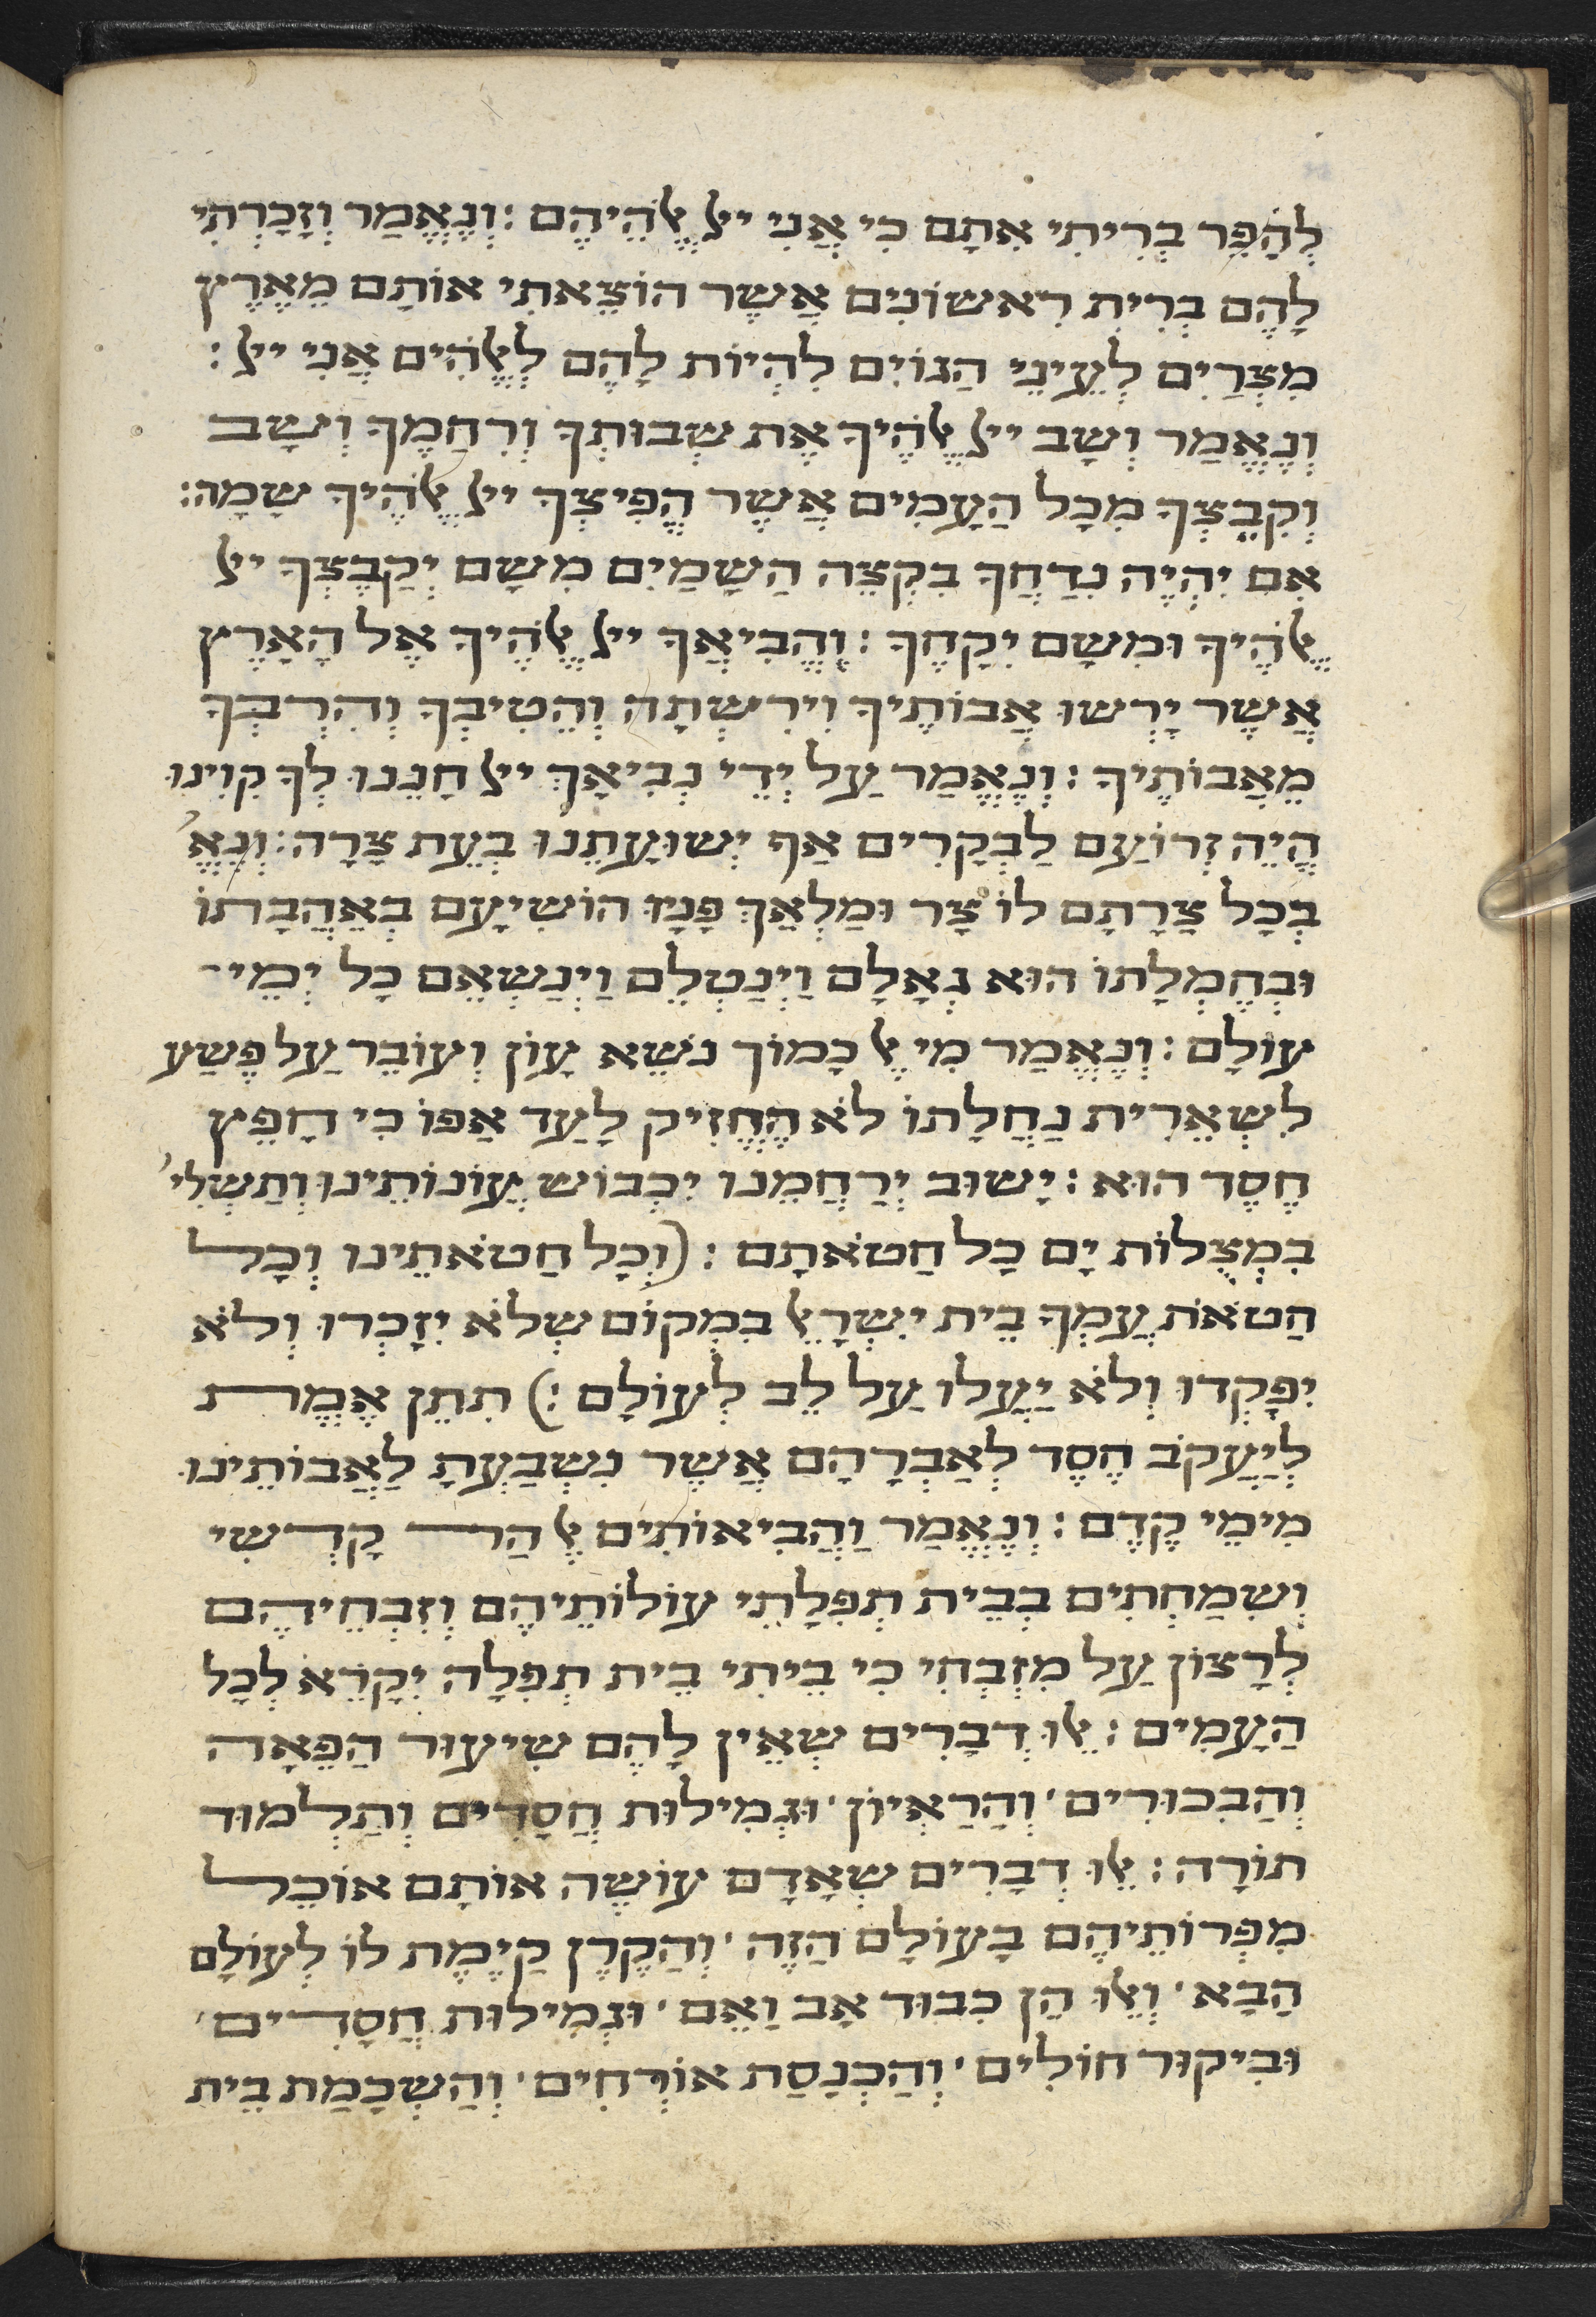 לְהָפֵר בְּרִיתִי אִתָּם כִּי אֲנִי ייָ אֱלֹהֵיהֶם : וְנֶאֱמַר וְזָכַרְתִּי
לָהֶם בְּרִית רִאשׁוֹנִים אֲשֶׁר הוֹצֵאתִי אוֹתָם מֵאֶרֶץ
מִצְרַיִם לְעֵינֵי הַגּוֹיִם לִהְיוֹת לָהֶם לֵאֱלֹהִים אֲנִי ייָ :
וְנֶאֱמַר וְשָׁב ייָ אֱלֹהֶיךָ אֶת שְׁבוּתְךָ וְרִחֲמֶךָ וְשָׁב
וְקִבֶּצְךָ מִכָּל הָעַמִּים אֲשֶׁר הֱפִיצְךָ ייָ אֱלֹהֶיךָ שָׁמָּה :
אִם יִהְיֶה נִדַּחֲךָ בִּקְצֵה הַשָּׁמַיִם מִשָּׁם יְקַבֶּצְךָ ייָ
אֱלֹהֶיךָ וּמִשָּׁם יִקָּחֶךָ : וֶהֱבִיאֲךָ ייָ אֱלֹהֶיךָ אֶל הָאָרֶץ
אֲשֶׁר יָרְשׁוּ אֲבוֹתֶיךָ וִירִשְׁתָּהּ וְהֵטִיבְךָ וְהִרְבְּךָ
מֵאֲבוֹתֶיךָ : וְנֶאֱמַר עַל יְדֵי נְבִיאָךְ ייָ חָנֵּנוּ לְךָ קִוִּינוּ
הֱיֵה זְרוֹעָם לַבְּקָרִים אַף יְשׁוּעָתֵנוּ בְּעֵת צָרָה : וְנֶאֱ׳
בְּכָל צָרָתָם לוֹ צָר וּמַלְאַךְ פָּנָיו הוֹשִׁיעָם בְּאַהֲבָתוֹ
וּבְחֶמְלָתוֹ הוּא גְאָלָם וַיְנַטְּלֵם וַיְנַשְּׂאֵם כָּל יְמֵי
עוֹלָם : וְנֶאֱמַר מִי אֵל כָּמוֹךָ נֹשֵׂא עָוֹן וְעוֹבֵר עַל פֶּשַׁע
לִשְׁאֵרִית נַחֲלָתוֹ לֹא הֶחֱזִיק לָעַד אַפּוֹ כִּי חָפֵץ
חֶסֶד הוּא : יָשׁוּב יְרַחֲמֵנוּ יִכְבּוֹשׁ עֲוֹנוֹתֵינוּ וְתַשְׁלִי׳
בִּמְצֻלוֹת יָם כָּל חַטֹּאתָם : (וְכָל חַטֹּאתֵינוּ וְכָל
חַטֹּאת עַמְּךָ בֵּית יִשְׂרָאֵל בִּמְקוֹם שֶׁלֹּא יִזָּכְרוּ וְלֹא
יִפָּקְדוּ וְלֹא יַעֲלוּ עַל לֵב לְעוֹלָם :) תִּתֵּן אֱמֶת
לְיַעֲקֹב חֶסֶד לְאַבְרָהָם אֲשֶׁר נִשְׁבַּעְתָּ לַאֲבוֹתֵינוּ
מִימֵי קֶדֶם : וְנֶאֱמַר וַהֲבִיאוֹתִים אֶל הַר קָדְשִׁי
וְשִׂמַּחְתִּים בְּבֵית תְּפִלָּתִי עוֹלוֹתֵיהֶם וְזִבְחֵיהֶם
לְרָצוֹן עַל מִזְבְּחִי כִּי בֵיתִי בֵּית תְּפִלָּה יִקָּרֵא לְכָל
הָעַמִּים : אֵלּוּ דְבָרִים שֶׁאֵין לָהֶם שִׁיעוּר הַפֵּאָה
וְהַבִּכּוּרִים ׳ וְהָרַאְיוֹן ׳ וּגְמִילוּת חֲסָדִים וְתַלְמוּד
תּוֹרָה : אֵלּוּ דְבָרִים שֶׁאָדָם עוֹשֶׂה אוֹתָם אוֹכֵל
מִפֵּרוֹתֵיהֶם בָּעוֹלָם הַזֶּה ׳ וְהַקֶּרֶן קַיֶּמֶת לוֹ לְעוֹלָם
הַבָּא ׳ וְאֵלּוּ הֵן כִּבּוּד אָב וָאֵם ׳ וּגְמִילוּת חֲסָדִים ׳
וּבִיקּוּר חוֹלִים ׳ וְהַכְנָסַת אוֹרְחִים ׳ וְהַשְׁכָּמַת בֵּית